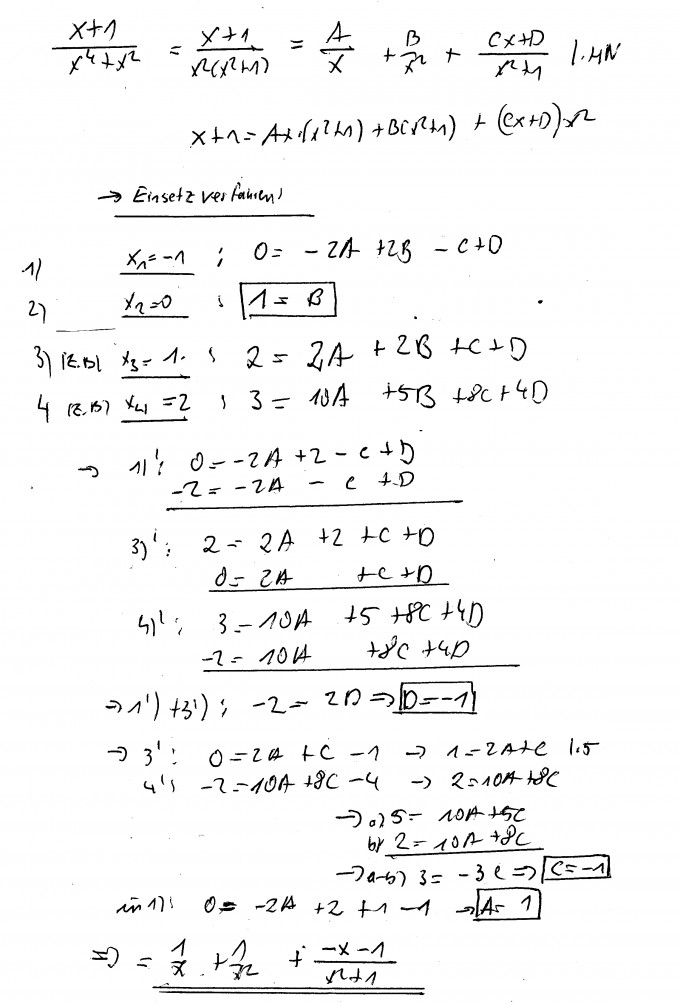 (x+1)/(x⁴+x²) = (x+1)/(x²(x²+1)) = A/x + B/x² + (Cx+D)/(x²+1) |·HN
x+1 = Ax·(x²+1) + B(x²+1) + (Cx+D)·x²
→ Einsetzverfahren:
1) x₁=-1 ; 0 = -2A +2B - C+D
2) x₂=0 ; 1 = B
3) (z.B) x₃=1 ; 2 = 2A + 2B + C + D
4 (z.B) x₄=2 ; 3 = 10A +5B +8C+4D
→ 1)': 0 = -2A +2 - C + D
-2 = -2A - C + D
3)': 2 = 2A +2 +C +D
0 = 2A +C +D
4)': 3 = 10A +5 +8C +4D
-2 = 10A +8C +4D
→ 1') +3'); -2 = 2D => D=-1
→ 3': 0 = 2A + C - 1 → 1 = 2A+C |·5
4': -2 = 10A +8C -4 → 2 = 10A +8C
→ a) 5 = 10A +5C
b) 2 = 10A +8C
→ a-b) 3 = -3C => C=-1
in 1): 0 = -2A + 2 + 1 - 1 → A = 1
=> = 1/x + 1/x² + (-x-1)/(x²+1)